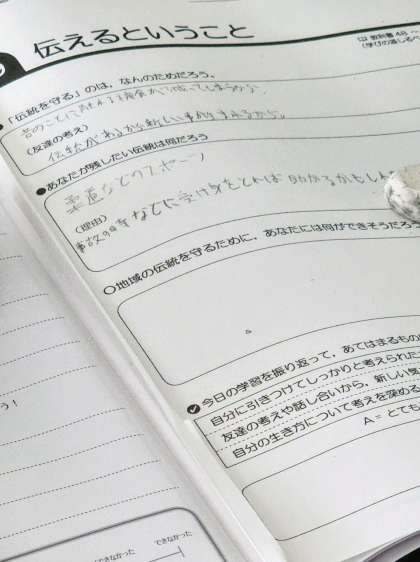 伝えるということ
教科書 48 ～
(学びの道しるべ
「伝統を守る」のは、なんのためだろう。
昔のことにふれる機会が減ってしまうから、
(友達の考え)
伝統があるから新しい事がうまれるから。
●あなたが残したい伝統は何だろう
柔道などのスポーツ
(理由)
事故の時などに受け身をとれば 助かるかもしん
○地域の伝統を守るために、あなたには何ができそうだろう
今日の学習を振り返って、あてはまるもの
自分に引きつけてしっかりと考えられた
友達の考えや話し合いから、新しい気
自分の生き方について考えを深める
A＝とても
う！
できなかった
できなかった